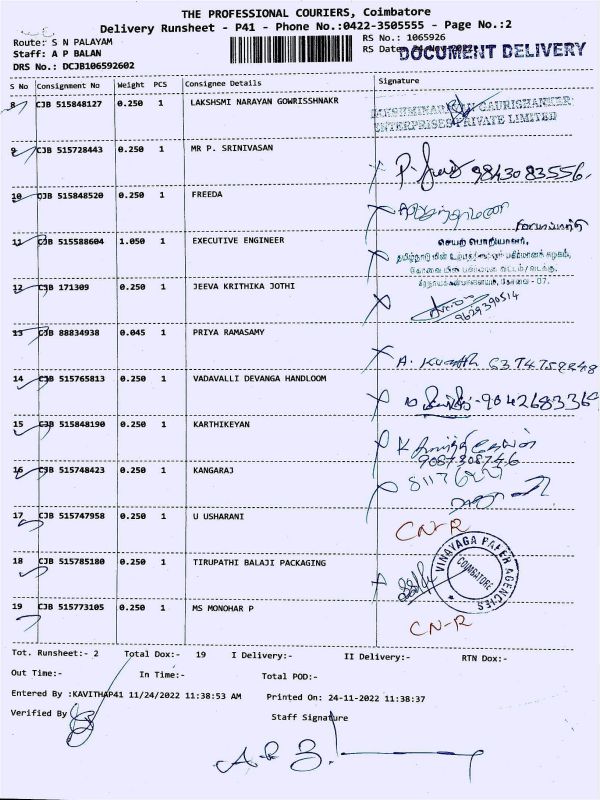 THE PROFESSIONAL COURIERS, Coimbatore
Delivery Runsheet - P41 - Phone No.:0422-3505555 - Page No.:2
Route: S N PALAYAM
RS No.: 1065926
Staff: A P BALAN
RS Date: 24-Nov-2022
DOCUMENT DELIVERY
DRS No.: DCJB106592602
S No Consignment No Weight PCS Consignee Details Signature
8 CJB 515848127 0.250 1 LAKSHSMI NARAYAN GOWRISSHNAKR
LAKSHMINARAYAN GAURISHANKER
ENTERPRISES PRIVATE LIMITED
9 CJB 515728443 0.250 1 MR P. SRINIVASAN
9843083556
10 CJB 515848520 0.250 1 FREEDA
11 CJB 515588604 1.050 1 EXECUTIVE ENGINEER
செயற் பொறியாளர்,
12 CJB 171309 0.250 1 JEEVA KRITHIKA JOTHI
9629390514
13 CJB 88834938 0.045 1 PRIYA RAMASAMY
14 CJB 515765813 0.250 1 VADAVALLI DEVANGA HANDLOOM
15 CJB 515848190 0.250 1 KARTHIKEYAN
9087308746
16 CJB 515748423 0.250 1 KANGARAJ
17 CJB 515747958 0.250 1 U USHARANI
CN-R
18 CJB 515785180 0.250 1 TIRUPATHI BALAJI PACKAGING
VINAYAGA PAPER AGENCIES
COIMBATORE
19 CJB 515773105 0.250 1 MS MONOHAR P
CN-R
Tot. Runsheet:- 2 Total Dox:- 19 I Delivery:- II Delivery:- RTN Dox:-
Out Time:- In Time:- Total POD:-
Entered By :KAVITHAP41 11/24/2022 11:38:53 AM Printed On: 24-11-2022 11:38:37
Verified By
Staff Signature